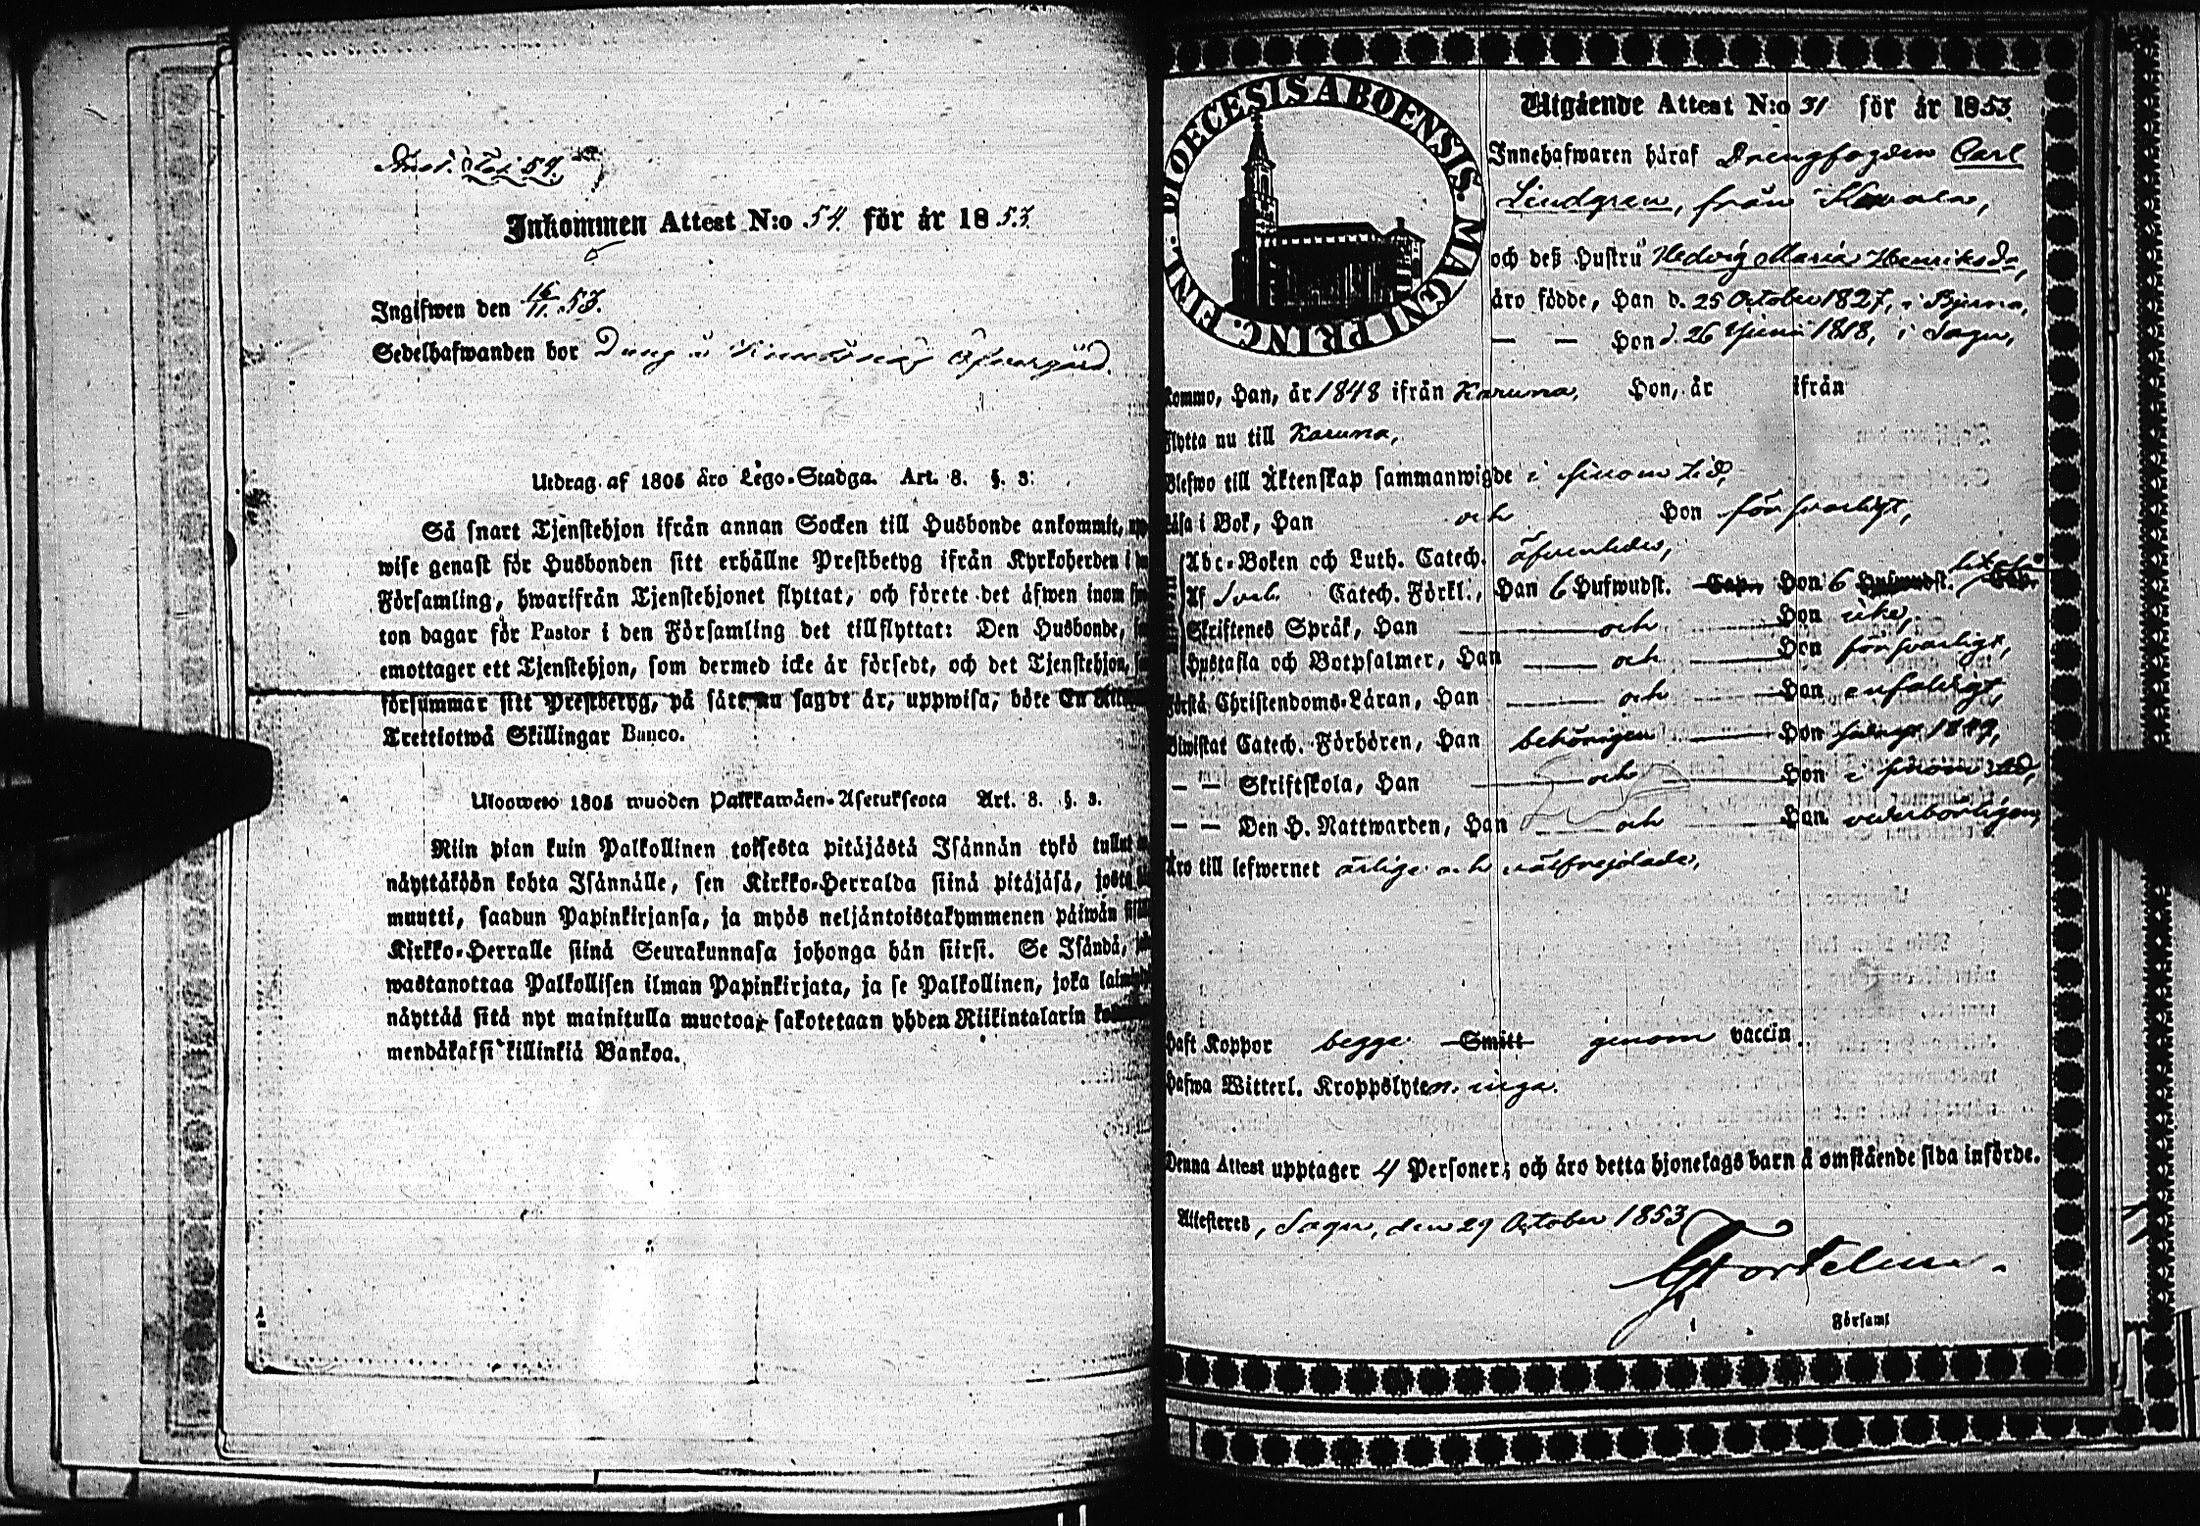 Fol 54.
Inkommen Attest N:o 54. för år 1853.
Ingifwen den 16/11 53.
Sedelhafwanden bor Dräng
Utdrag af 1805 års Lego-Stadga. Art. 8. §. 3:
Så snart Tjenstehjon ifrån annan Socken till Husbonde ankommit,
wise genast för Husbonden sitt erhållne Prestbetyg ifrån Kyrkoherden i
Församling, hwarifrån Tjenstehjonet flyttat, och förete det äfwen inom
ton dagar för Pastor i den Församling det tillflyttat: Den Husbonde,
emottager ett Tjenstehjon, som dermed icke är försedt, och det Tjenstehjon,
försummar sitt Prestbetyg, på sätt nu sagdt är, uppwisa, böte En
Trettiotwå Skillingar Banco.
Uloswero 1805 wuoden Palkkawäen-Asetuksesta Art. 8. §. 3.
Niin pian kuin Palkollinen toisesta pitäjästä Isännän tykö tullut
näyttäköön kohta Isännälle, sen Kirkko-Herralda siinä pitäjäsä, josta
muutti, saadun Papinkirjansa, ja myös neljäntoistakymmenen päiwän
Kirkko-Herralle siinä Seurakunnasa johonga hän siirsi. Se Isändä,
wastanottaa Palkollisen ilman Papinkirjata, ja se Palkollinen, joka
näyttää sitä nyt mainitulla muotoa, sakotetaan yhden Riikintalarin
mendäkaksi killinkiä Bankoa.
DIOECESIS ABOENSIS. MAGNI PRINC. FINL.
Utgående Attest N:o 31 för år 1853.
Innehafwaren häraf Drengfogden Carl
Lindgren, från
och deß Hustru Hedwig Maria Henriksdr,
äro födde, Han d. 25 October 1827, i Bjerno,
— — Hon d. 26 Juni 1818, i Sagu,
kommo, Han, år 1848 ifrån Karuna, Hon, år ifrån
Flytta nu till Karuna,
Blefwo till Äktenskap sammanwigde i sinom tid,
Läsa i Bok, Han och Hon försvarligt,
Abc-Boken och Luth. Catech. äfvenledes,
Af Sveb. Catech. Förkl., Han 6 Hufwudst. Cap., Hon 6 Hufwudst. Cap.
Skriftenes Språk, Han och Hon icke,
Hustafla och Botpsalmer, Han och Hon försvarligt,
Förstå Christendoms-Läran, Han och Hon enfaldigt,
Biwistat Catech. Förhören, Han behörigen Hon
— — Skriftskola, Han och Hon i sinom tid,
— — Den H. Nattwarden, Han och Hon vederbörligen,
Äro till lefwernet ärlige och välfrejdade,
Haft Koppor begge Smitt genom vaccin.
Hafwa Witterl. Kroppslyten. inga.
Denna Attest upptager 4 Personer; och äro detta hjonelags barn å omstående sida införde.
Attesteres, Sagu, den 29 October 1853
Församl